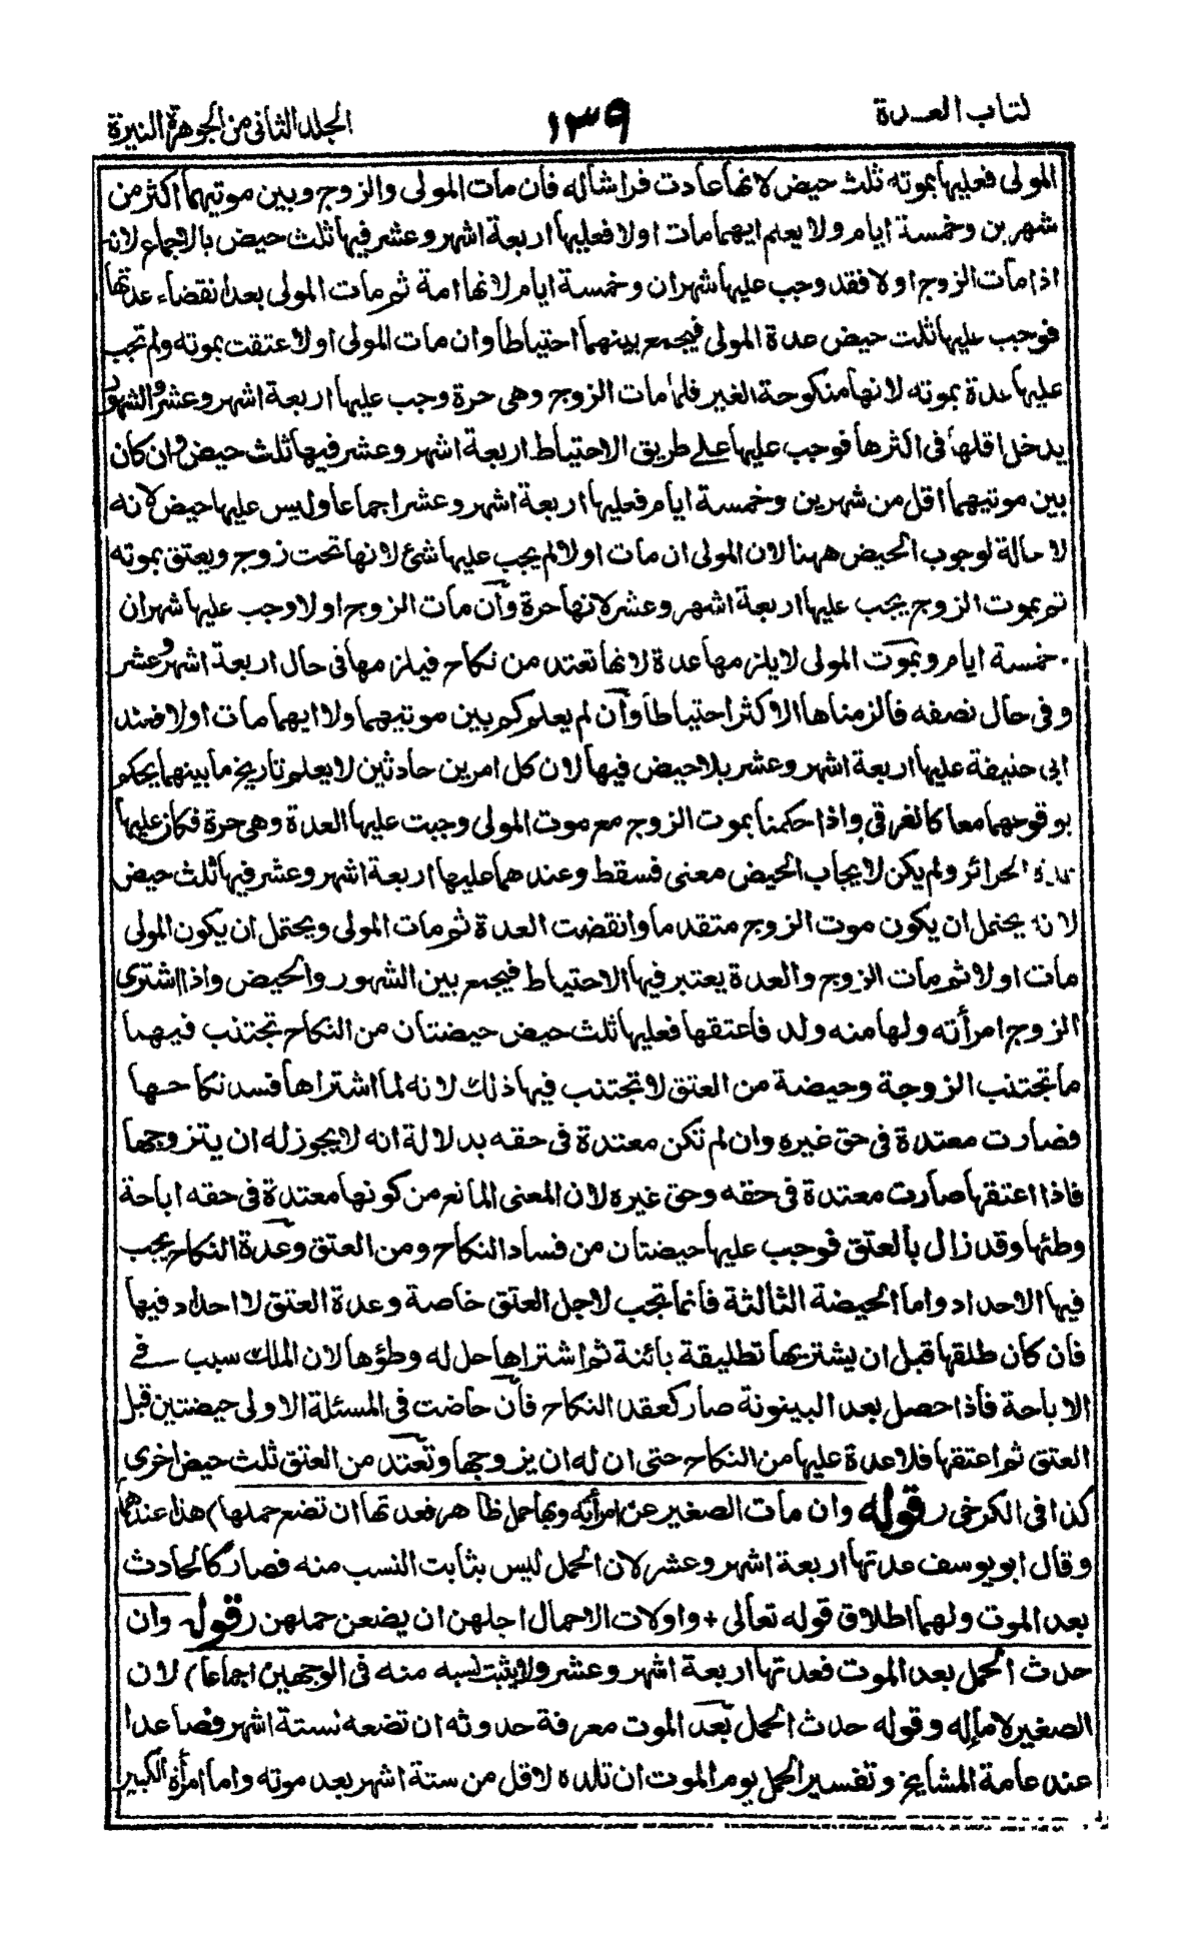 كتاب العدة
١٣٩
الجلد الثانى من الجوهرة النيرة
المولى فعليها بموته ثلث حيض لانها عادت فراشا له فان مات المولى والزوج وبين موتيهما اكثر من
شهرين وخمسة ايام ولا يعلم ايهما مات اولا فعليها اربعة اشهر وعشر فيها ثلث حيض بالاجماع لانه
اذا مات الزوج اولا فقد وجب عليها شهران وخمسة ايام لانها امة ثم مات المولى بعد انقضاء عدتها
فوجب عليها ثلث حيض عدة المولى فيجمع بينهما احتياطا وان مات المولى اولا عتقت بموته ولم تجب
عليها عدة بموته لانها منكوحة الغير فلما مات الزوج وهى حرة وجب عليها اربعة اشهر وعشر والشهور
يدخل اقلها فى اكثرها فوجب عليها على طريق الاحتياط اربعة اشهر وعشر فيها ثلث حيض وان كان
بين موتيهما اقل من شهرين وخمسة ايام فعليها اربعة اشهر وعشر اجماعا وليس عليها حيض لانه
لا حالة لوجوب الحيض ههنا لان المولى ان مات اولا لم يجب عليها شئ لانها تحت زوج ويعتق بموته
ثم بموت الزوج يجب عليها اربعة اشهر وعشر لانها حرة وان مات الزوج اولا وجب عليها شهران
وخمسة ايام وبموت المولى لا يلزمها عدة لانها تعتد من نكاح فيلزمها فى حال اربعة اشهر وعشر
وفى حال نصفه فالزمناها الاكثر احتياطا وان لم يعلم كم بين موتيهما ولا ايهما مات اولا فعند
ابى حنيفة عليها اربعة اشهر وعشر بلا حيض فيها لان كل امرين حادثين لا يعلم تاريخ ما بينهما يحكم
بوقوعهما معا كالغرقى واذا حكمنا بموت الزوج مع موت المولى وجبت عليها العدة وهى حرة فكان عليها
عدة الحرائر ولم يكن لايجاب الحيض معنى فسقط وعندهما عليها اربعة اشهر وعشر فيها ثلث حيض
لانه يحتمل ان يكون موت الزوج متقدما وانقضت العدة ثم مات المولى ويحتمل ان يكون المولى
مات اولا ثم مات الزوج والعدة يعتبر فيها الاحتياط فيجمع بين الشهور والحيض واذا اشترى
الزوج امرأته ولها منه ولد فاعتقها فعليها ثلث حيض حيضتان من النكاح تجتنب فيهما
ما تجتنب الزوجة وحيضة من العتق لا تجتنب فيها ذلك لانه لما اشتراها فسد نكاحها
فصارت معتدة فى حق غيره وان لم تكن معتدة فى حقه بدلالة انه لا يجوز له ان يتزوجها
فاذا اعتقها صارت معتدة فى حقه وحق غيره لان المعنى المانع من كونها معتدة فى حقه اباحة
وطئها وقد زال بالعتق فوجب عليها حيضتان من فساد النكاح ومن العتق وعدة النكاح يجب
فيها الاحداد واما الحيضة الثالثة فانما تجب لاجل العتق خاصة وعدة العتق لا احداد فيها
فان كان طلقها قبل ان يشتريها تطليقة بائنة ثم اشتراها حل له وطؤها لان الملك سبب فے
الاباحة فاذا حصل بعد البينونة صار كعقد النكاح فان حاضت فى المسئلة الاولى حيضتين قبل
العتق ثم اعتقها فلا عدة عليها من النكاح حتى ان له ان يزوجها وتعتد من العتق ثلث حيض اخرى
كذا فى الكرخى (قوله وان مات الصغير عن امرأته وبها حمل ظاهر فعدتها ان تضع حملها) هذا عندهما
وقال ابو يوسف عدتها اربعة اشهر وعشر لان الحمل ليس بثابت النسب منه فصار كالحادث
بعد الموت ولهما اطلاق قوله تعالى + واولات الاحمال اجلهن ان يضعن حملهن (قوله وان
حدث الحمل بعد الموت فعدتها اربعة اشهر وعشر ولا يثبت نسبه منه فى الوجهين اجماعا) لان
الصغير لا ماء له وقوله حدث الحمل بعد الموت معرفة حدوثه ان تضعه لستة اشهر فصاعدا
عند عامة المشايخ وتفسير الحمل يوم الموت ان تلده لاقل من ستة اشهر بعد موته واما امرأة الكبير